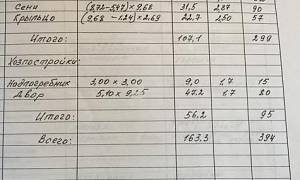 Сени (8,72-5,47)×9,68 31,5 2,87 90
Крыльцо (9,68 -1,24)×2,69 22,7 2,50 57
Итого: 107,1 299
Хозпостройки
Надпогребник 3,00×3,00 9,0 1,7 15
Двор 5,10×9,25 47,2 1,7 80
Итого: 56,2 95
Всего: 163,3 394